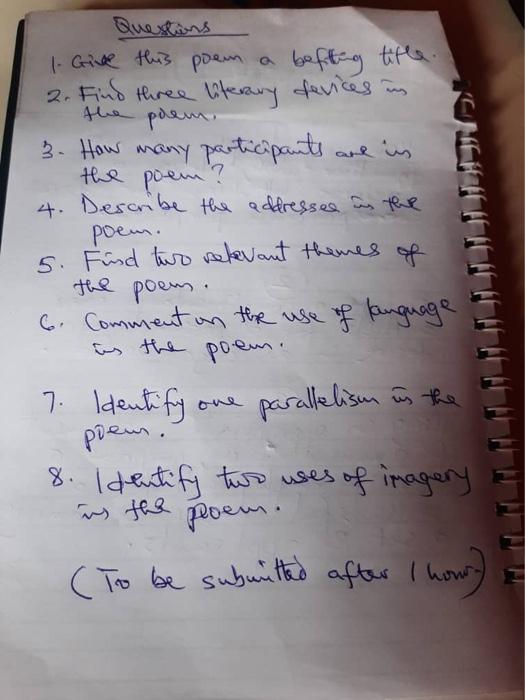 Questions
1. Give this poem a befitting title.
2. Find three literary devices in
the poem.
3. How many participants are in
the poem?
4. Describe the addressee in the
poem.
5. Find two relevant themes of
the poem.
6. Comment on the use of language
in the poem.
7. Identify one parallelism in the
poem.
8. Identify two uses of imagery
in the poem.
(To be submitted after 1 hour)